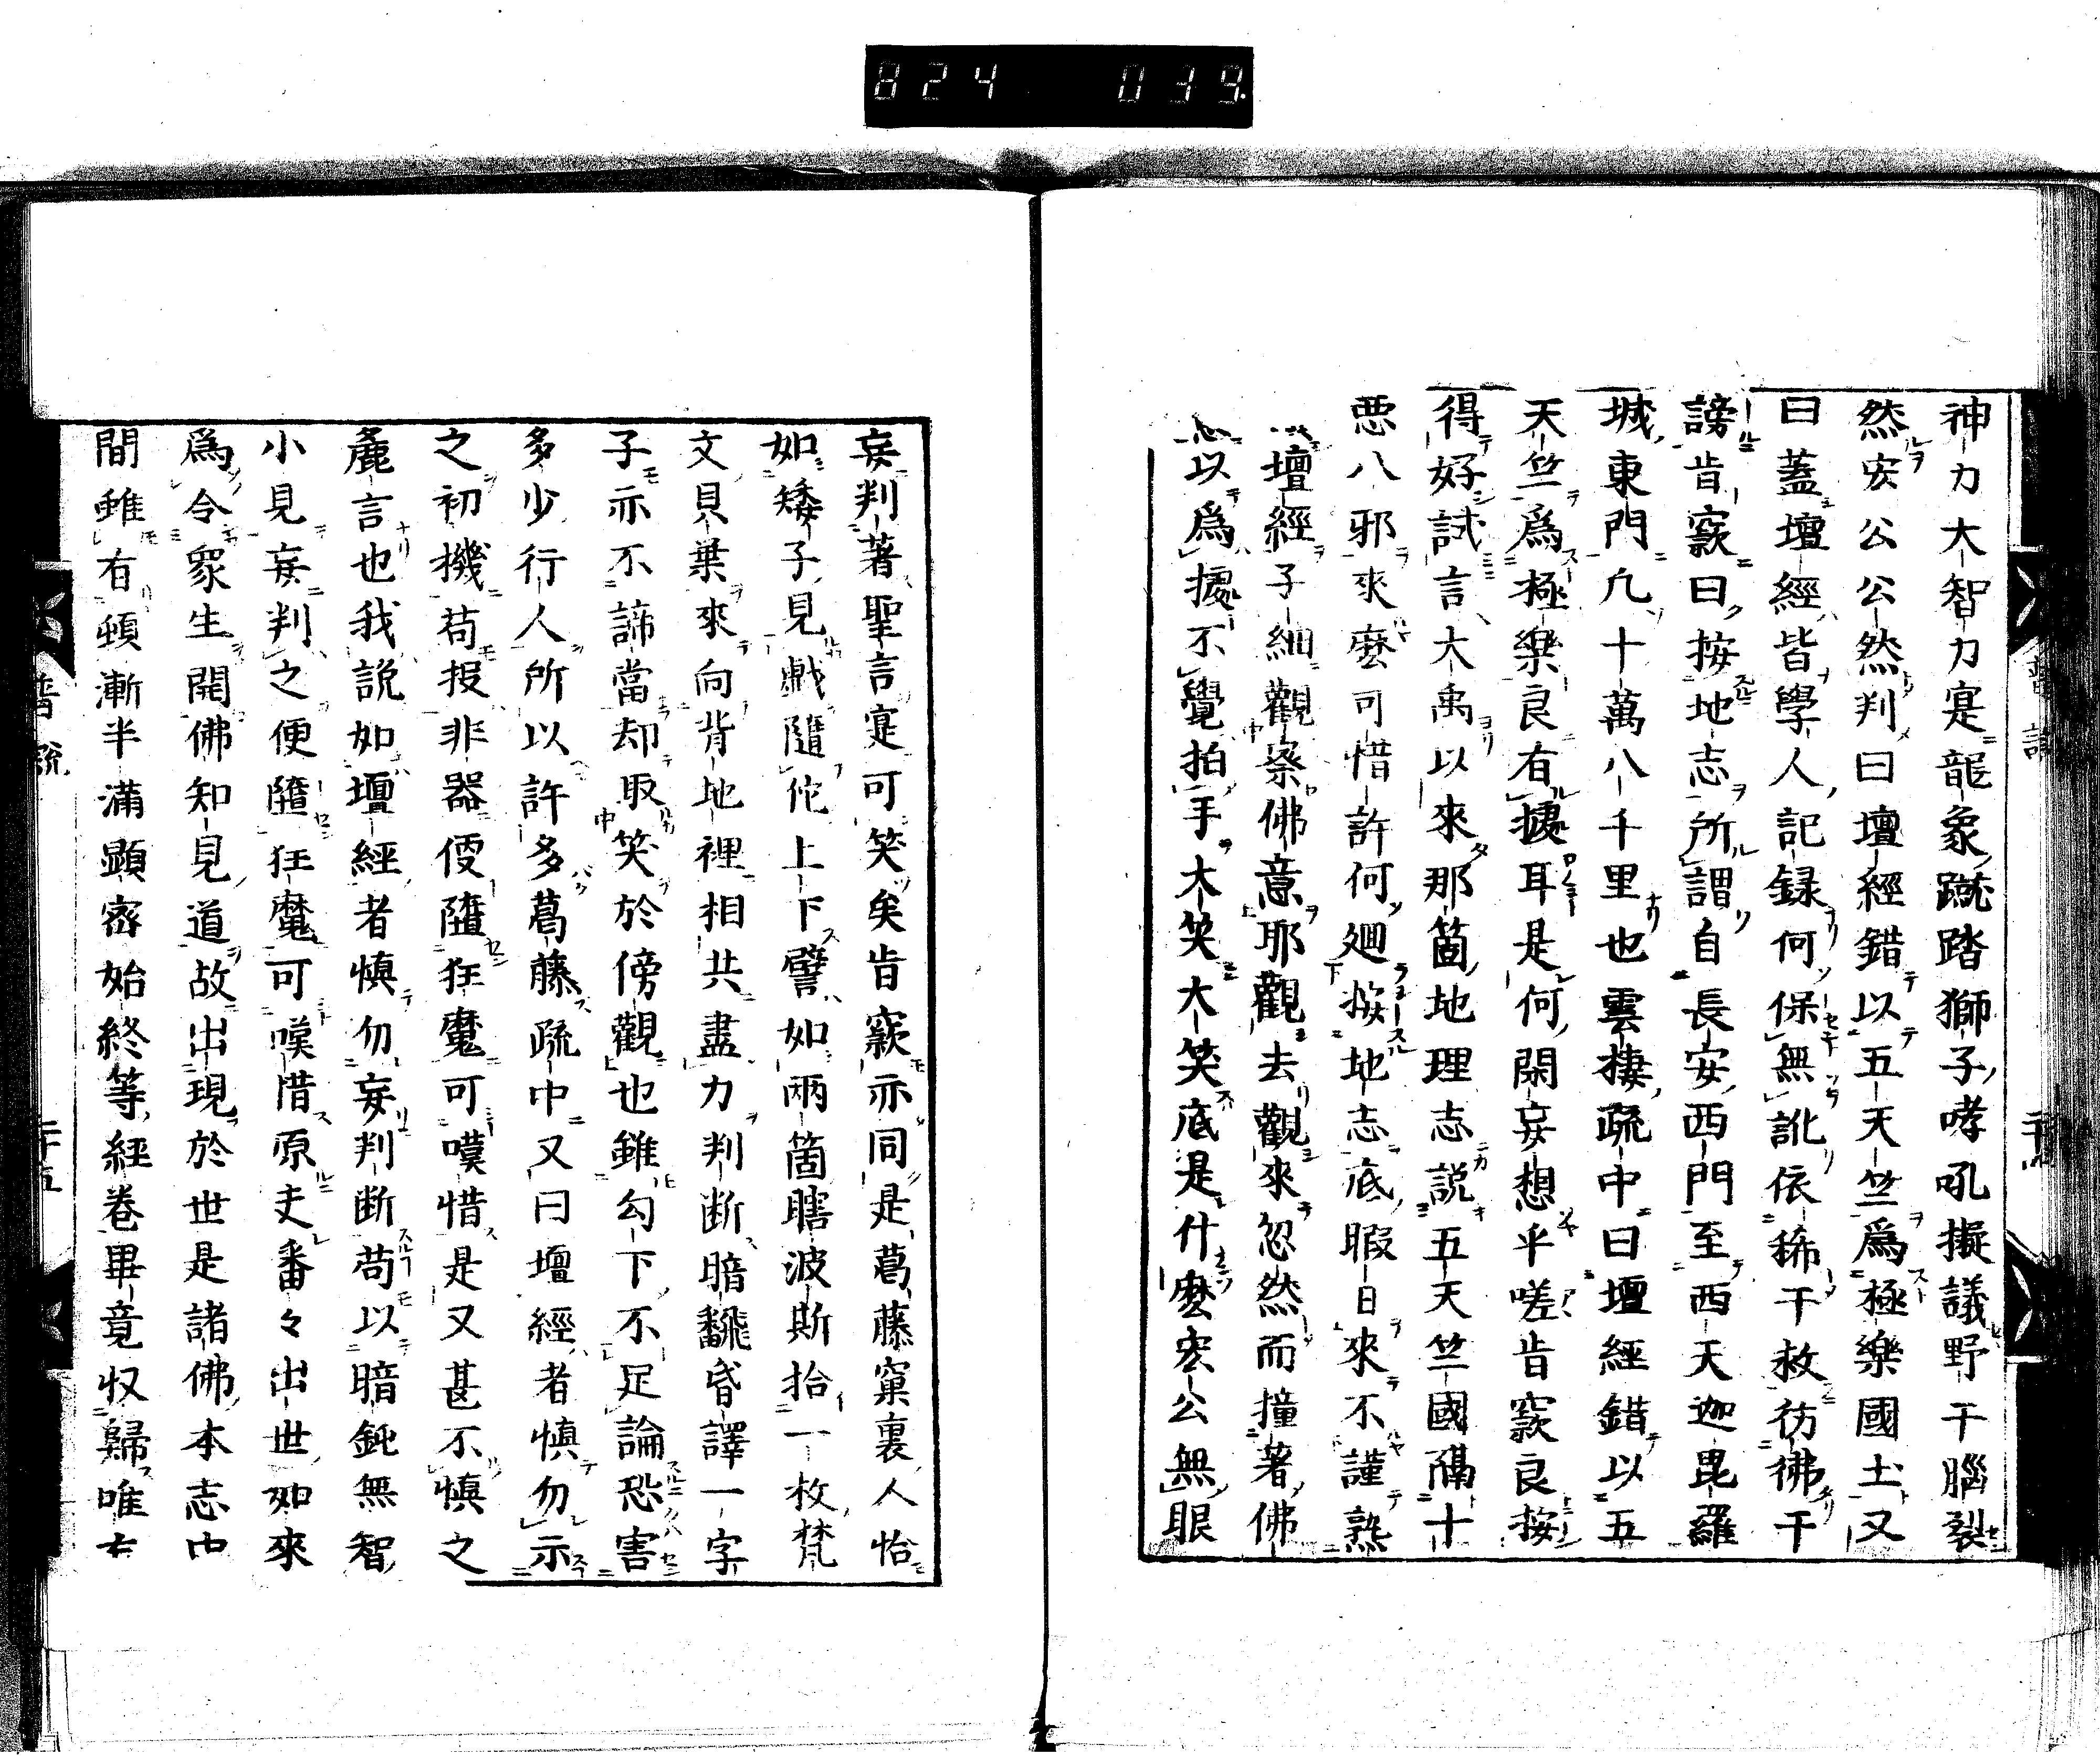 824 039
神力大智力寔龍象蹴踏獅子哮吼擬議野干腦裂
然宏公公然判曰壇經錯以五天竺爲極樂國土又
曰蓋壇經皆學人記録何保無訛依稀干救彷彿干
謗旹窾曰按地志所謂自長安西門至西天迦毘羅
城東門凢十萬八千里也雲棲疏中曰壇經錯以五
天竺爲極樂良有據耳是何閑妄想乎嗟旹窾良按
得好試言大禹以來那箇地理志説五天竺國隔十
悪八邪來麽可惜許何廻按地志底暇日來不謹熟
壇經子細觀察佛意耶觀去觀來忽然而撞著佛
以爲據不覺拍手大笑大笑底是什麽宏公無眼
妄判著聖言寔可笑矣旹窾亦同是葛藤窠裏人恰
如矮子見戲隨佗上下譬如兩箇瞎波斯拾一枚梵
文貝葉來向背地裡相共盡力判断暗飜昏譯一字
子亦不諦當却取笑於傍觀也雖勾下不足論恐害
多少行人所以許多葛藤疏中又曰壇經者慎勿示
之初機苟报非器便隨狂魔可嘆惜是又甚不慎之
麁言也我説如壇經者慎勿妄判断苟以暗鈍無智
小見妄判之便隨狂魔可嘆惜原夫番々出世如來
爲令衆生開佛知見道故出現於世是諸佛本志中
間雖有頓漸半滿顕密始終等經卷畢竟収歸唯
普説
二十五